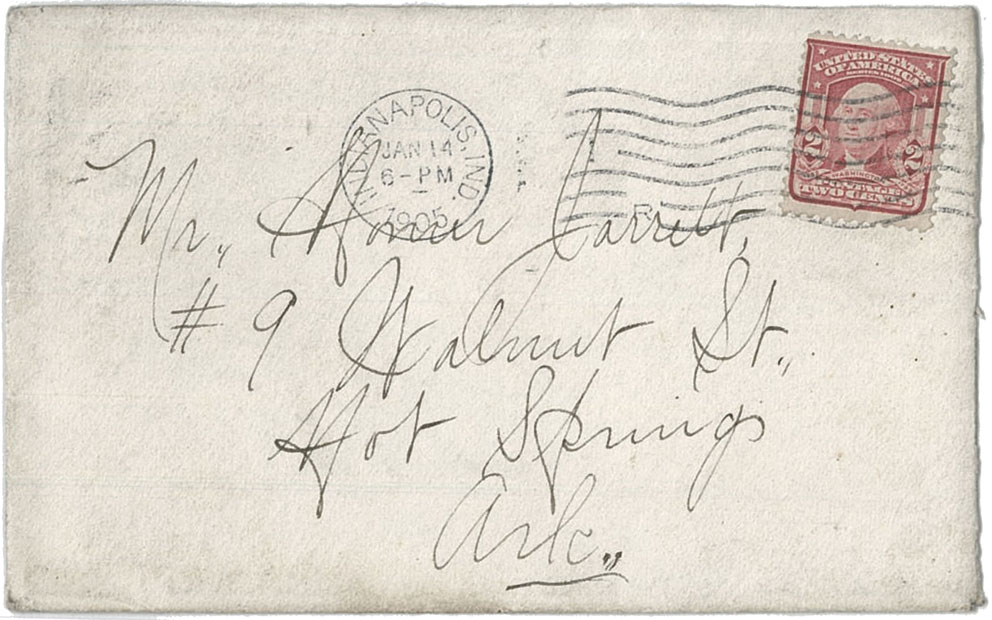 UNITED STATES
OF AMERICA
SERIES 1902
2 2
WASHINGTON
POSTAGE
TWO CENTS
INDIANAPOLIS, IND.
JAN 14
6-PM
1905
Mr. Homer Jarrett,
# 9 Walnut St.,
Hot Springs
Ark.,